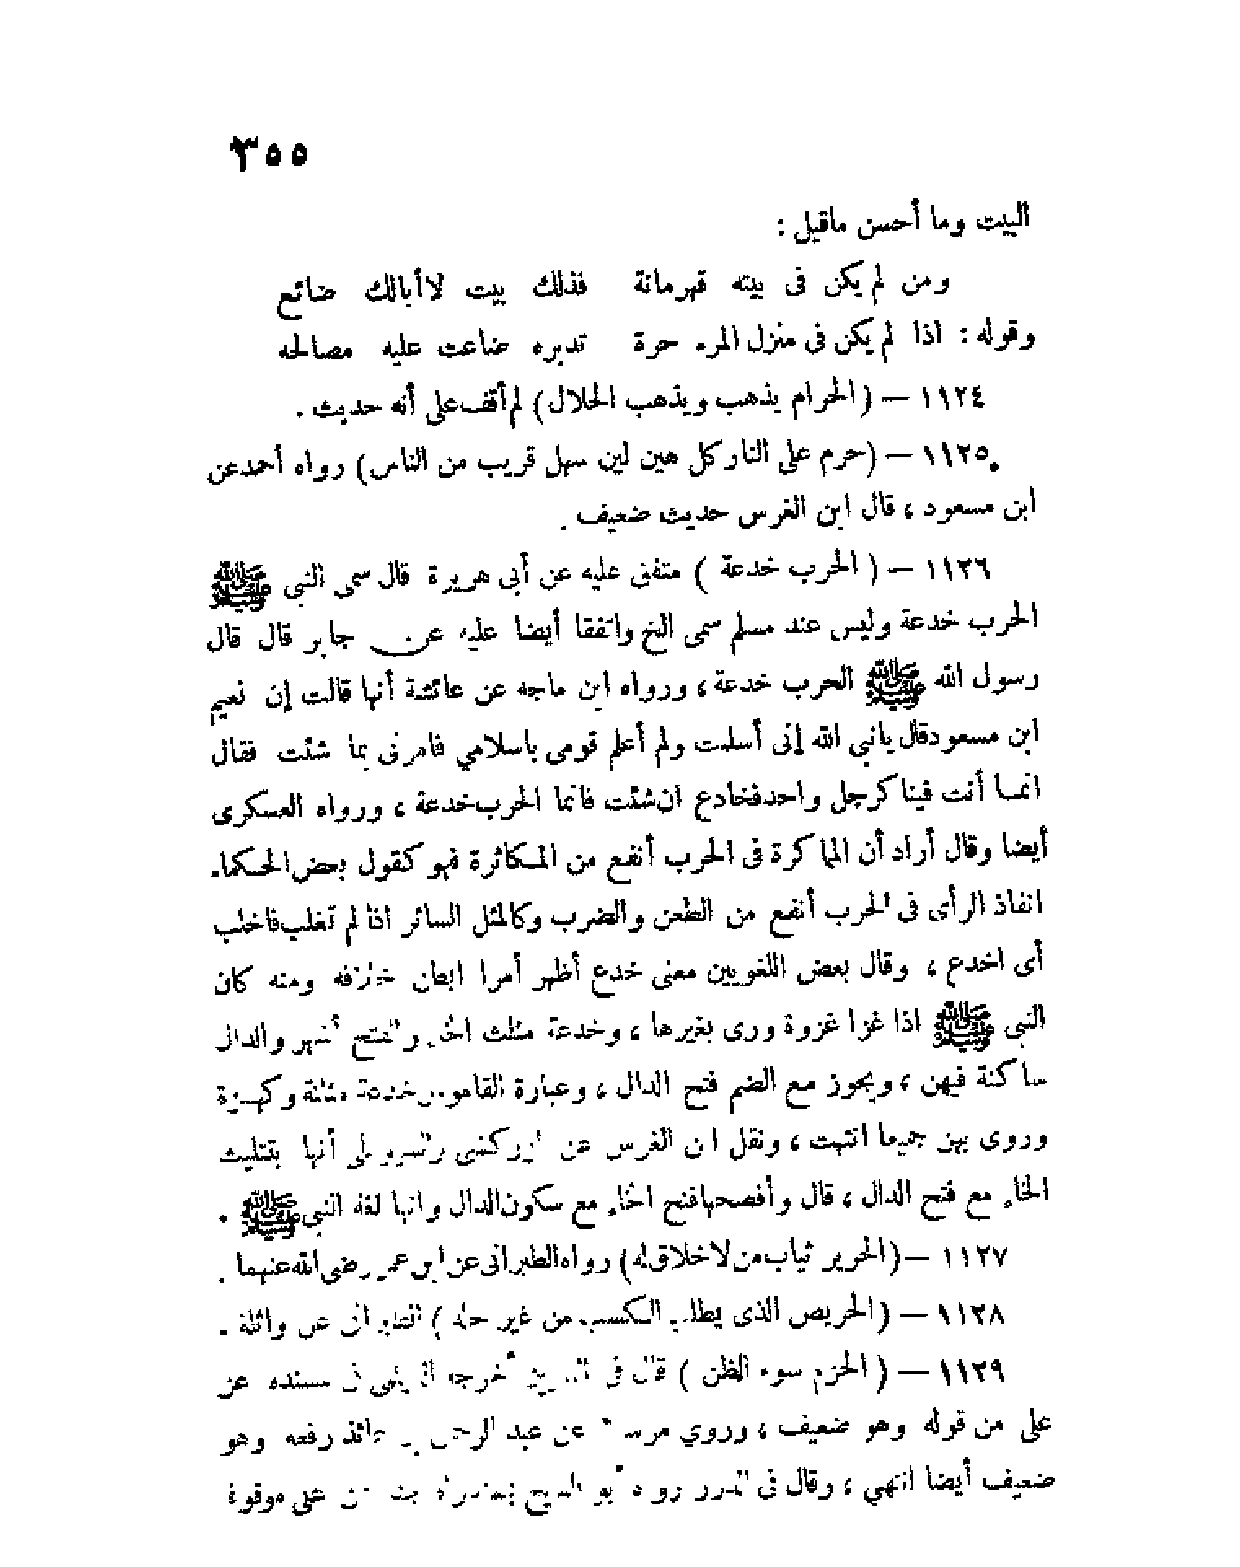 ٣٥٥
البيت وما أحسن ماقيل :
ومن لم يكن فى بيته قهرمانة فذلك بيت لاأبالك ضائع
وقوله : اذا لم يكن فى منزل المرء حرة تدبره ضاعت عليه مصالحه
١١٢٤ – (الحرام يذهب ويذهب الحلال) لم أقف على أنه حديث .
١١٢٥ – (حرم على النار كل هين لين سهل قريب من الناس) رواه أحمد عن
ابن مسعود ، قال ابن الغرس حديث ضعيف .
١١٢٦ – ( الحرب خدعة ) متفق عليه عن أبى هريرة قال سمى النبي ﷺ
الحرب خدعة وليس عند مسلم سمى الخ واتفقا أيضا عليه عن جابر قال قال
رسول الله ﷺ الحرب خدعة ، ورواه ابن ماجه عن عائشة أنها قالت إن نعيم
ابن مسعود قال يانبي الله إنى أسلمت ولم أعلم قومى باسلامي فامرنى بما شئت فقال
انمـا أنت فينا كرجل واحد فخادع ان شئت فانما الحرب خدعة ، ورواه العسكرى
أيضا وقال أراد أن المماكرة فى الحرب أنفع من المكاثرة فهو كقول بعض الحكماء
انفاذ الرأى فى الحرب أنفع من الطعن والضرب وكالمثل السائر اذا لم تغلب فاخلب
أى اخدع ، وقال بعض اللغويين معنى خدع أظهر أمرا ابطن خلافه ومنه كان
النبي ﷺ اذا غزا غزوة ورى بغيرها ، وخدعة مثلث الخاء والفتح أشهر والدال
ساكنة فيهن ، ويجوز مع الضم فتح الدال ، وعبارة القاموس خدعة مثلثة وكهمزة
وروى بهن جميعا انتهت ، ونقل ابن الغرس عن الزركشى والسيوطى أنها بتثليث
الخاء مع فتح الدال ، قال وأفصحها فتح الخاء مع سكون الدال وانها لغة النبي ﷺ .
١١٢٧ – (الحرير ثياب من لاخلاق له) رواه الطبرانى عن ابن عمر رضى الله عنهما .
١١٢٨ – (الحريص الذى يطلب الكسب من غير حله ) الطبرانى عن واثلة .
١١٢٩ – ( الحزم سوء الظن ) قال فى أخرجه فى مسنده عن
على من قوله وهو ضعيف ، وروي مرسلا عن عبد الرحمن بن عائذ رفعه وهو
ضعيف أيضا انتهي ، وقال فى الدرر رواه أبو الشيخ بسند عن على موقوفا